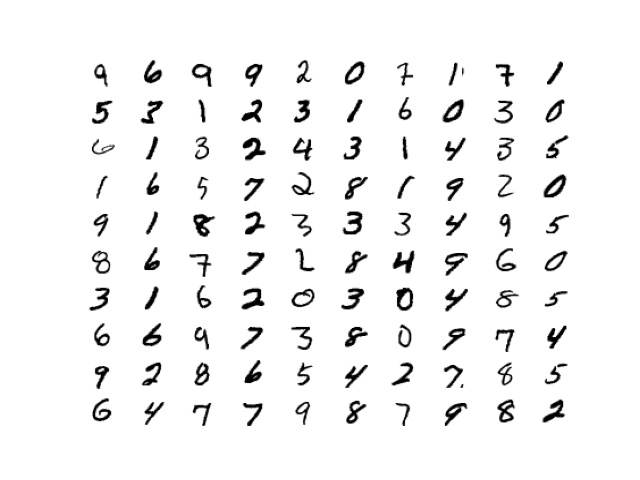 9 6 9 9 2 0 7 1 7 1
5 3 1 2 3 1 6 0 3 0
6 1 3 2 4 3 1 4 3 5
1 6 5 7 2 8 1 9 2 0
9 1 8 2 3 3 3 4 9 5
8 6 7 7 2 8 4 9 6 0
3 1 6 2 0 3 0 4 8 5
6 6 9 7 3 8 0 9 7 4
9 2 8 6 5 4 2 7 8 5
6 4 7 7 9 8 7 9 8 2